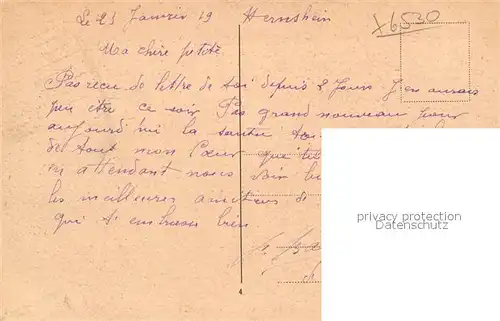 Le 23 Janvier 19 Hernshein
x6530
Ma chère petite
Pas reçu de lettre de toi depuis 2 Jours J'en aurais
peu etre ce soir Pas grand nouveau pour
aujourd'hui la santée
de tout mon Cœur que
en attendant nous voir
les meilleures amitiées de
qui t'embrasse bien
privacy protection
Datenschutz
4